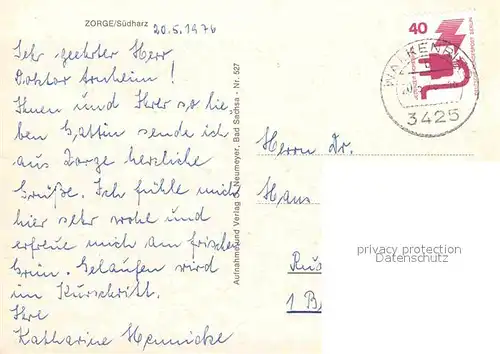 ZORGE/Südharz
20.5.1976
Sehr geehrter Herr
Doktor Arnheim!
Ihnen und Ihrer so lie
ben Gattin sende ich
aus Zorge herzliche
Grüße. Ich fühle mich
hier sehr wohl und
erfreue mich am frischen
Grün. Gelaufen wird
im Kurschritt.
Ihre
Katharine Hennicke
Aufnahme und Verlag Neumeyer, Bad Sachsa - Nr. 527
40
WALKENRIED
3425
Herrn Dr.
Hans
1 B
privacy protection
Datenschutz